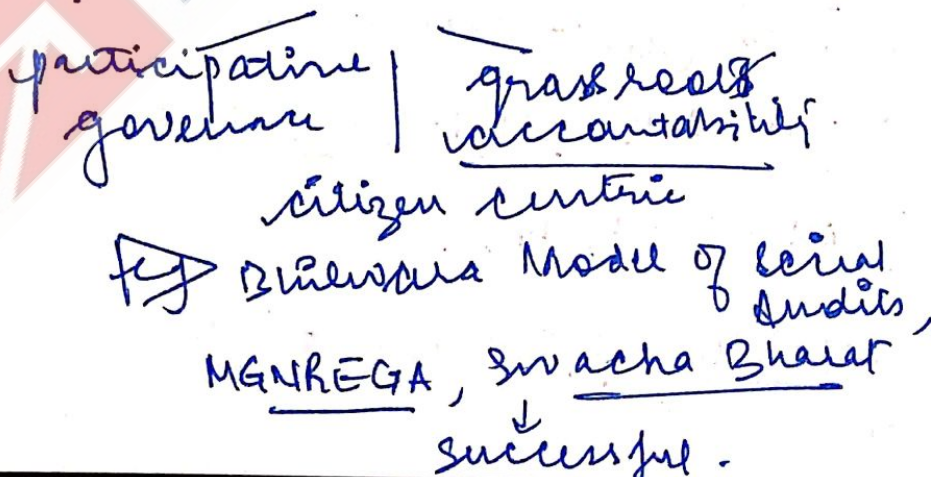 participative | grassroots
governance | accountability
citizen centric
eg Bhilwara Model of Social
Audits,
MGNREGA, Swacha Bharat
↓
successful.